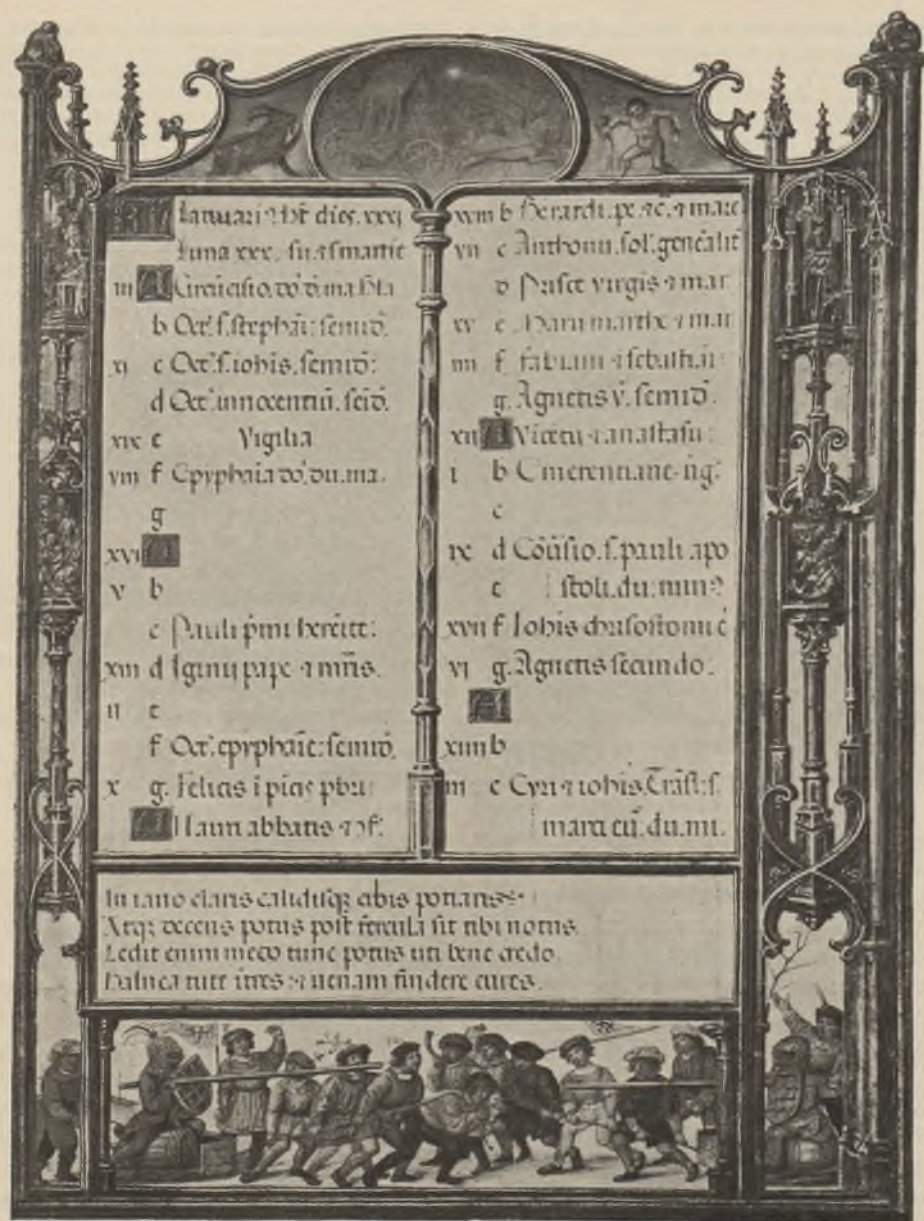 KL Ianuari⁹ hꝫ dies. xxxj
Luna xxx. su
iii A Circũcisio. dõ. du. ma
b Octᵃ. s. stephãi: semid̃.
xi c Octᵃ. s. iohis. semid̃:
d Octᵃ. innocentiũ. seid̃.
xix e Vigilia
viii f Epyphãia dõ. du. ma.
g
xvi A
v b
c Pauli pͥmi heremit̃:
xiii d Iginij pape ⁊ mr̃is.
ii e
f Octᵃ. epyphaĩe: semid̃.
x g. Felicis i pĩcis pbr̃i:
A Mauri abbatis ⁊ ɔf.
xviii b Berardi. pe. ⁊ c. ⁊ marc
vii c Anthonii. sol. gen̾alit̾
d Prisce virgis ⁊ mar
xv e Marii marthe ⁊ mar
iiii f fabiani ⁊ sebastiãi:
g. Agnetis v̾. semid̃.
xii A Vicẽtii ⁊ anastasii:
i b Emerentiane. v̾ig:
c
ix d Cõũsio. s. pauli. apo
e stoli. du. min⁹
xvii f Iohis chrisostomi ẽ
vi g. Agnetis secundo.
A
xiiii b
iii c Cyri ⁊ iohis. Trãsl: s.
marci cũ. du. mi.
In iano claris calidisqꝫ cibis potiaris
Atqꝫ decens potus post fercula sit tibi notus.
Ledit enim medo tunc potus uti bene credo.
Balnea tute intres ⁊ uenam findere cures.